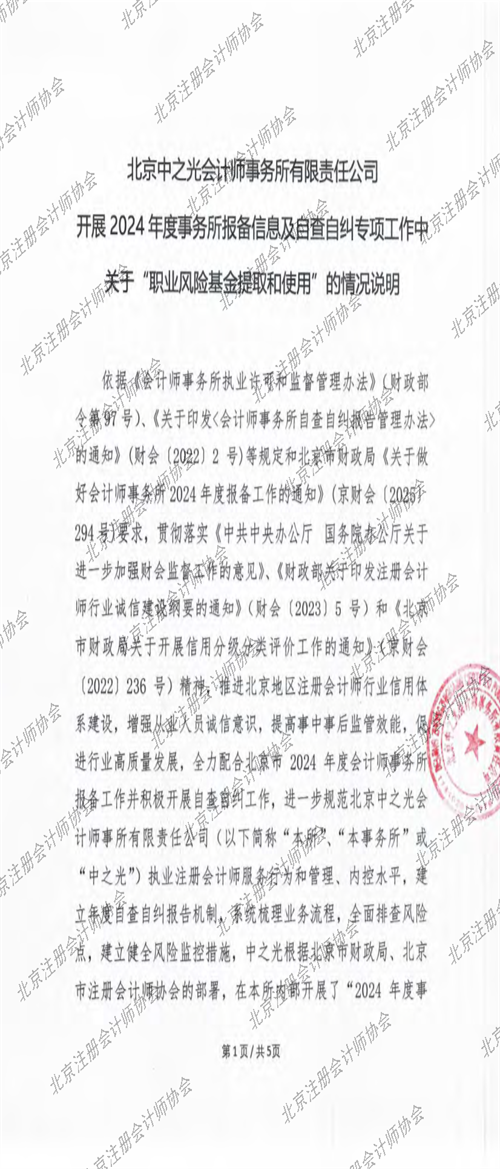 北京中之光会计师事务所有限责任公司
开展 2024 年度事务所报备信息及自查自纠专项工作中
关于“职业风险基金提取和使用”的情况说明
依据《会计师事务所执业许可和监督管理办法》(财政部
令第 97 号)、《关于印发<会计师事务所自查自纠报告管理办法>
的通知》(财会〔2022〕2 号)等规定和北京市财政局《关于做
好会计师事务所 2024 年度报备工作的通知》(京财会〔2025〕
294 号)要求，贯彻落实《中共中央办公厅 国务院办公厅关于
进一步加强财会监督工作的意见》、《财政部关于印发注册会计
师行业诚信建设纲要的通知》(财会〔2023〕5 号）和《北京
市财政局关于开展信用分级分类评价工作的通知》(京财会
〔2022〕236 号）精神，推进北京地区注册会计师行业信用体
系建设，增强从业人员诚信意识，提高事中事后监管效能，促
进行业高质量发展，全力配合北京市 2024 年度会计师事务所
报备工作并积极开展自查自纠工作，进一步规范北京中之光会
计师事所有限责任公司（以下简称“本所”、“本事务所”或
“中之光”）执业注册会计师服务行为和管理、内控水平，建
立年度自查自纠报告机制，系统梳理业务流程，全面排查风险
点，建立健全风险监控措施，中之光根据北京市财政局、北京
市注册会计师协会的部署，在本所内部开展了“2024 年度事
第 1 页 / 共 5 页
北京注册会计师协会